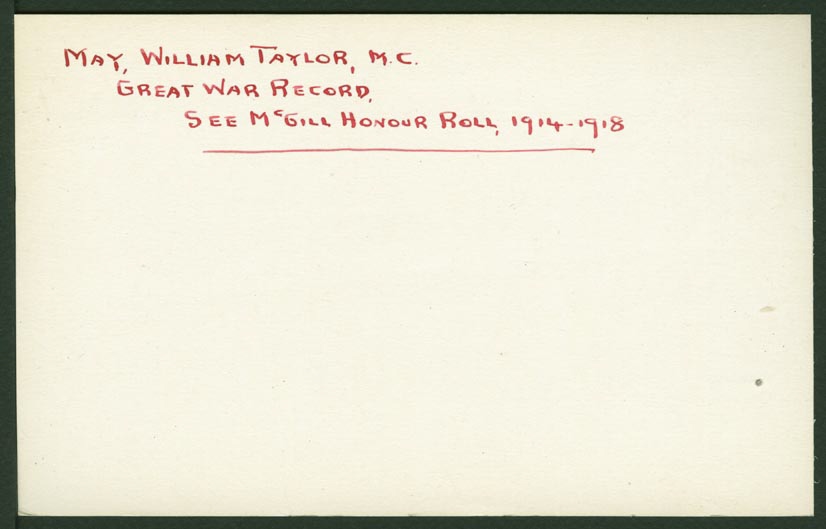 MAY, WILLIAM TAYLOR, M.C.
GREAT WAR RECORD,
SEE McGILL HONOUR ROLL, 1914-1918